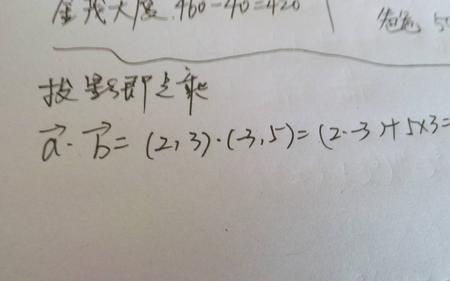 金茂大厦.460-40=420
投影即点乘
a⃗·b⃗=(2,3)·(-3,5)=(2·-3)+5×3=